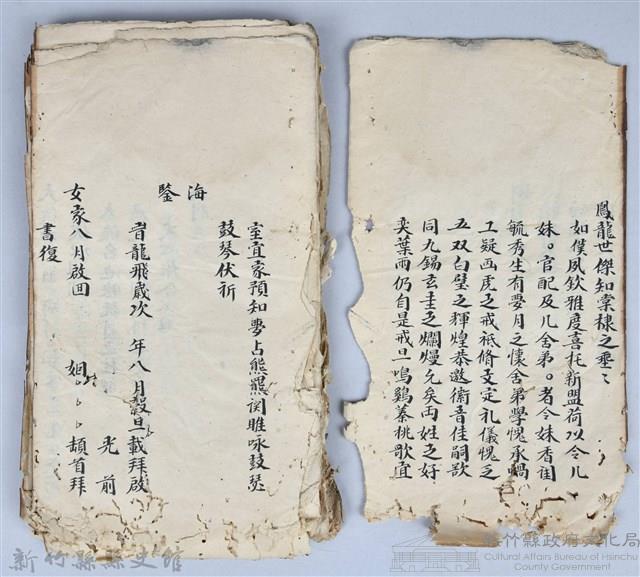 鳳龍世傑知棠棣之垂〻
如僕夙欽雅度喜托新盟荷以令儿
妹。官配及儿舍弟。者令妹香闺
毓秀生有要月之懷舍弟學愧承蜩
工疑画虎之戒祗脩文定礼儀愧乏
五双白璧之輝煌恭邀衛音佳嗣歆
同九錫玄圭之爛熳允矣両姓之好
奕葉而仍自是戒旦鳴鷄蓁桃歌宜
室宜家預知夢占熊羆関睢咏鼓瑟
鼓琴伏祈
海
鑒
旹龍飛歳次 年八月榖旦載拜啟
光前
女家八月啟回 姻 頡首拜
書復
新竹縣縣史館
新竹縣政府文化局
Cultural Affairs Bureau of Hsinchu
County Government